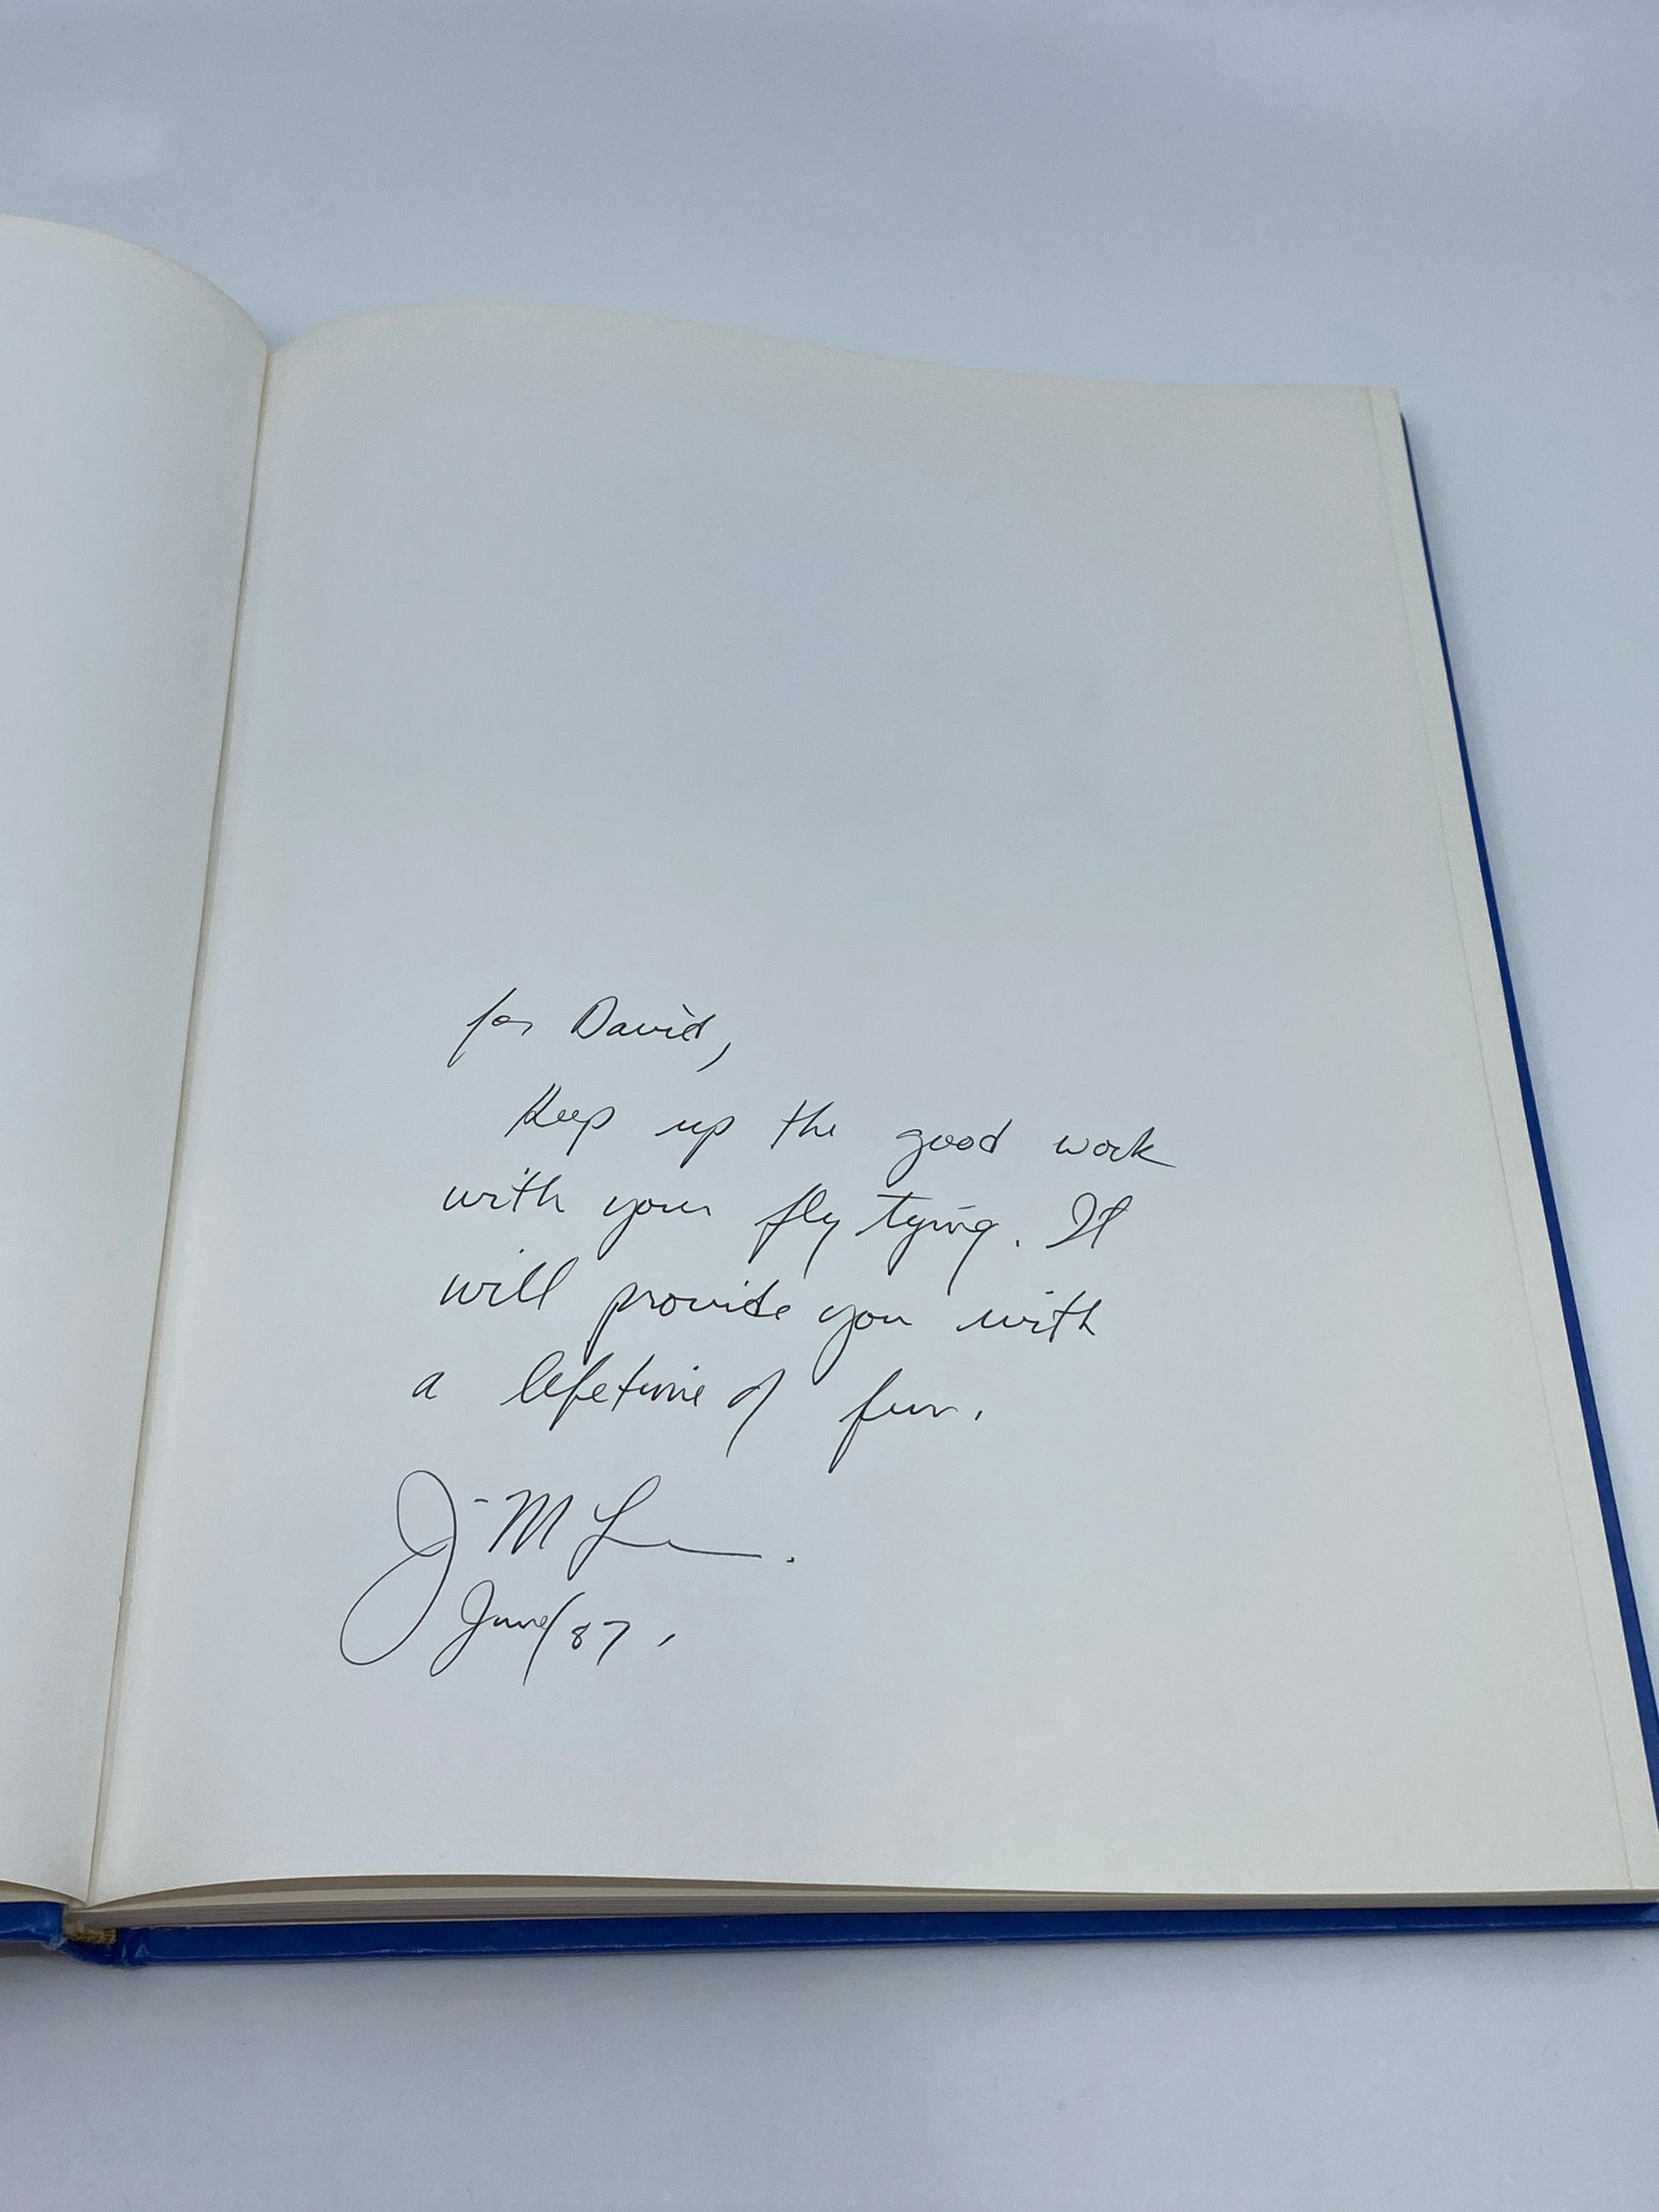 for David,
Keep up the good work
with your fly tying. It
will provide you with
a lifetime of fun.
J M
June/87.